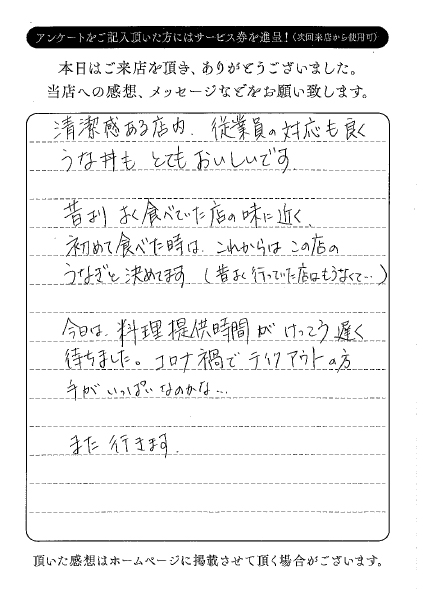 アンケートをご記入頂いた方にはサービス券を進呈！（次回来店から使用可）
本日はご来店を頂き、ありがとうございました。
当店への感想、メッセージなどをお願い致します。
清潔感ある店内、従業員の対応も良く
うな丼も とてもおいしいです。
昔より よく食べていた店の味に近く、
初めて食べた時は、これからは この店の
うなぎと決めてます（昔よく行っていた店はもうなくて…）
今日は、料理提供時間が けっこう遅く
待ちました。コロナ禍で テイクアウトの方
手がいっぱいなのかな…
また 行きます。
頂いた感想はホームページに掲載させて頂く場合がございます。